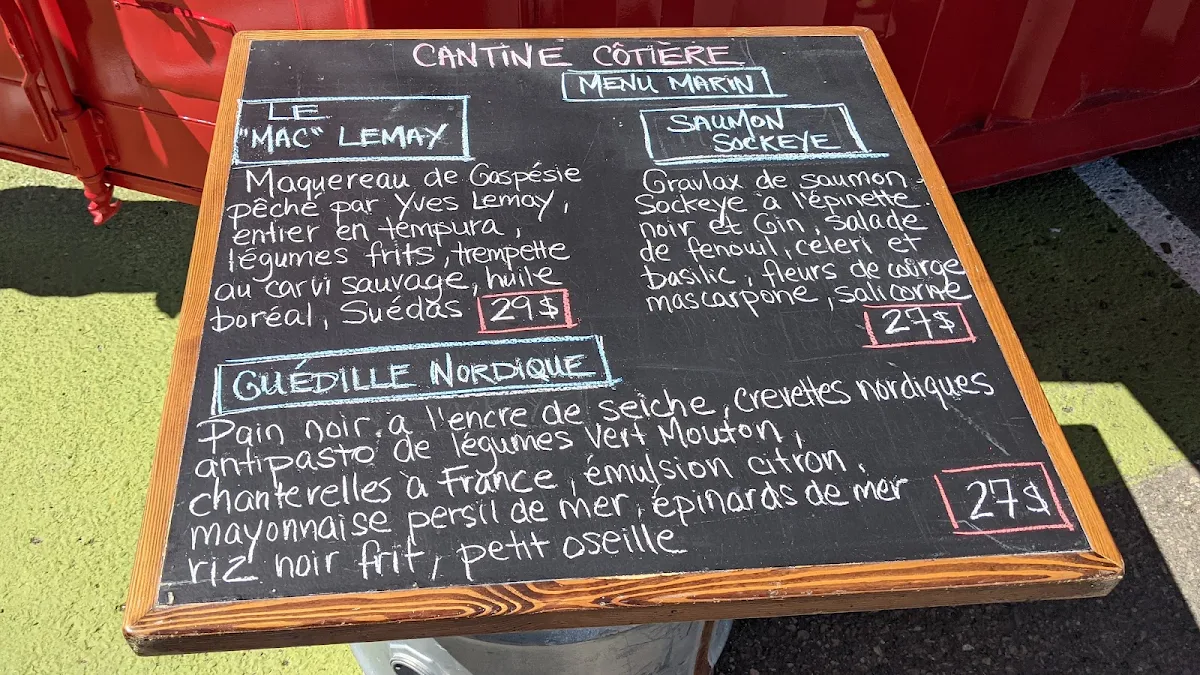 CANTINE CÔTIÈRE
MENU MARIN
LE
"MAC" LEMAY
Maquereau de Gaspésie
pêché par Yves Lemay,
entier en tempura,
légumes frits, trempette
au carvi sauvage, huile
boréal, Suédas 29$
SAUMON
SOCKEYE
Gravlax de saumon
Sockeye à l'épinette
noir et Gin, salade
de fenouil, céleri et
basilic, fleurs de courge
mascarpone, salicorne
27$
GUÉDILLE NORDIQUE
Pain noir à l'encre de seiche, crevettes nordiques
antipasto de légumes Vert Mouton,
chanterelles à France, émulsion citron,
mayonnaise persil de mer, épinards de mer
riz noir frit, petit oseille
27$